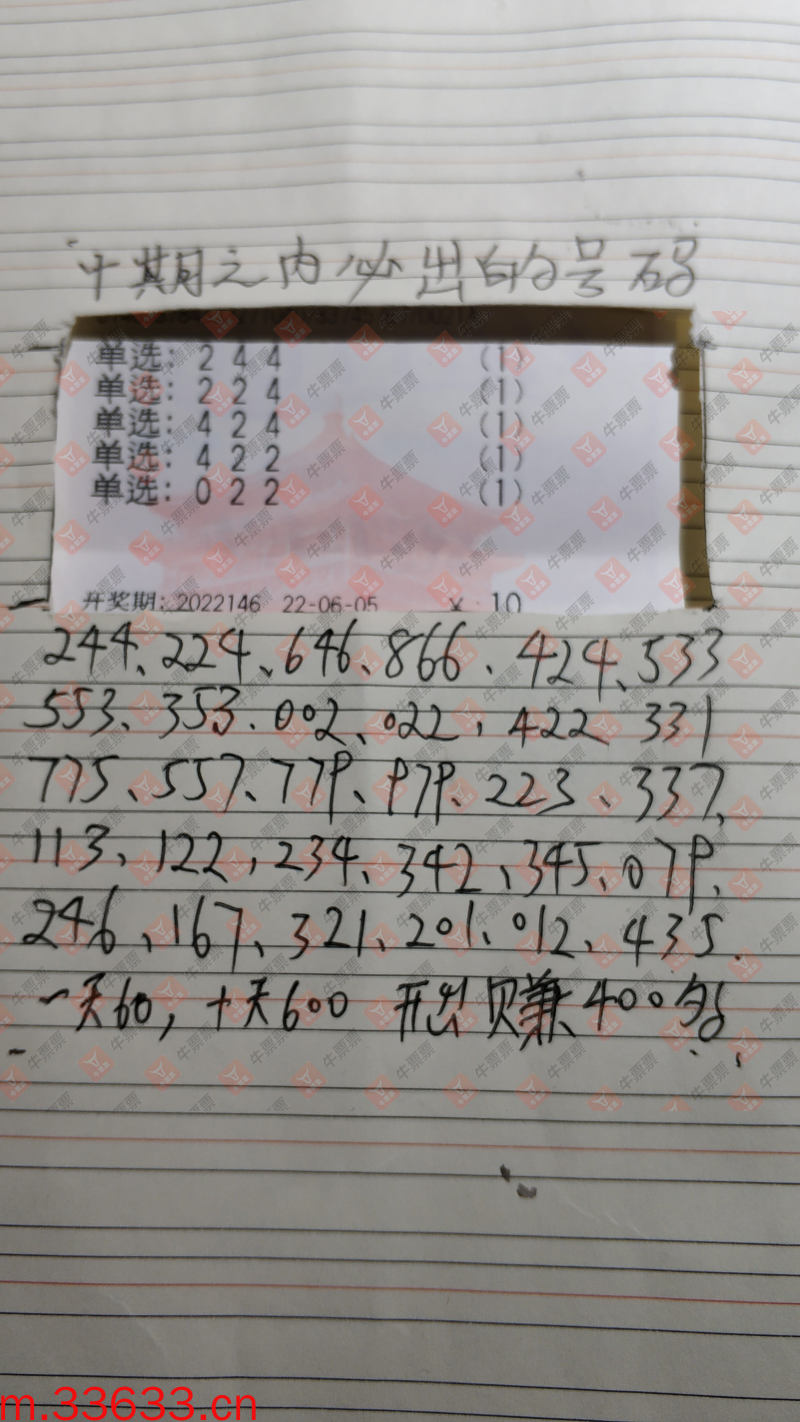 十期之内必出的号码
单选: 2 4 4 (1)
单选: 2 2 4 (1)
单选: 4 2 4 (1)
单选: 4 2 2 (1)
单选: 0 2 2 (1)
开奖期: 2022146 22-06-05 ¥ 10
244、224、646、866、424、533
553、353、002、022、422 331
775、557、779、979、223、337、
113、122、234、342、345、079、
246、167、321、201、012、435.
一天60, 十天600 开出贝赚400多
牛票票
m.33633.cn